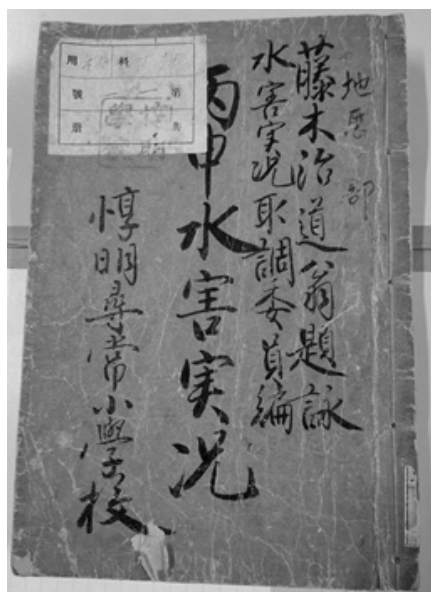 地歴部
藤木治道翁題詠
水害実況取調委員編
丙申水害実况
惇明尋常小學校
科
用
第
號
共
冊